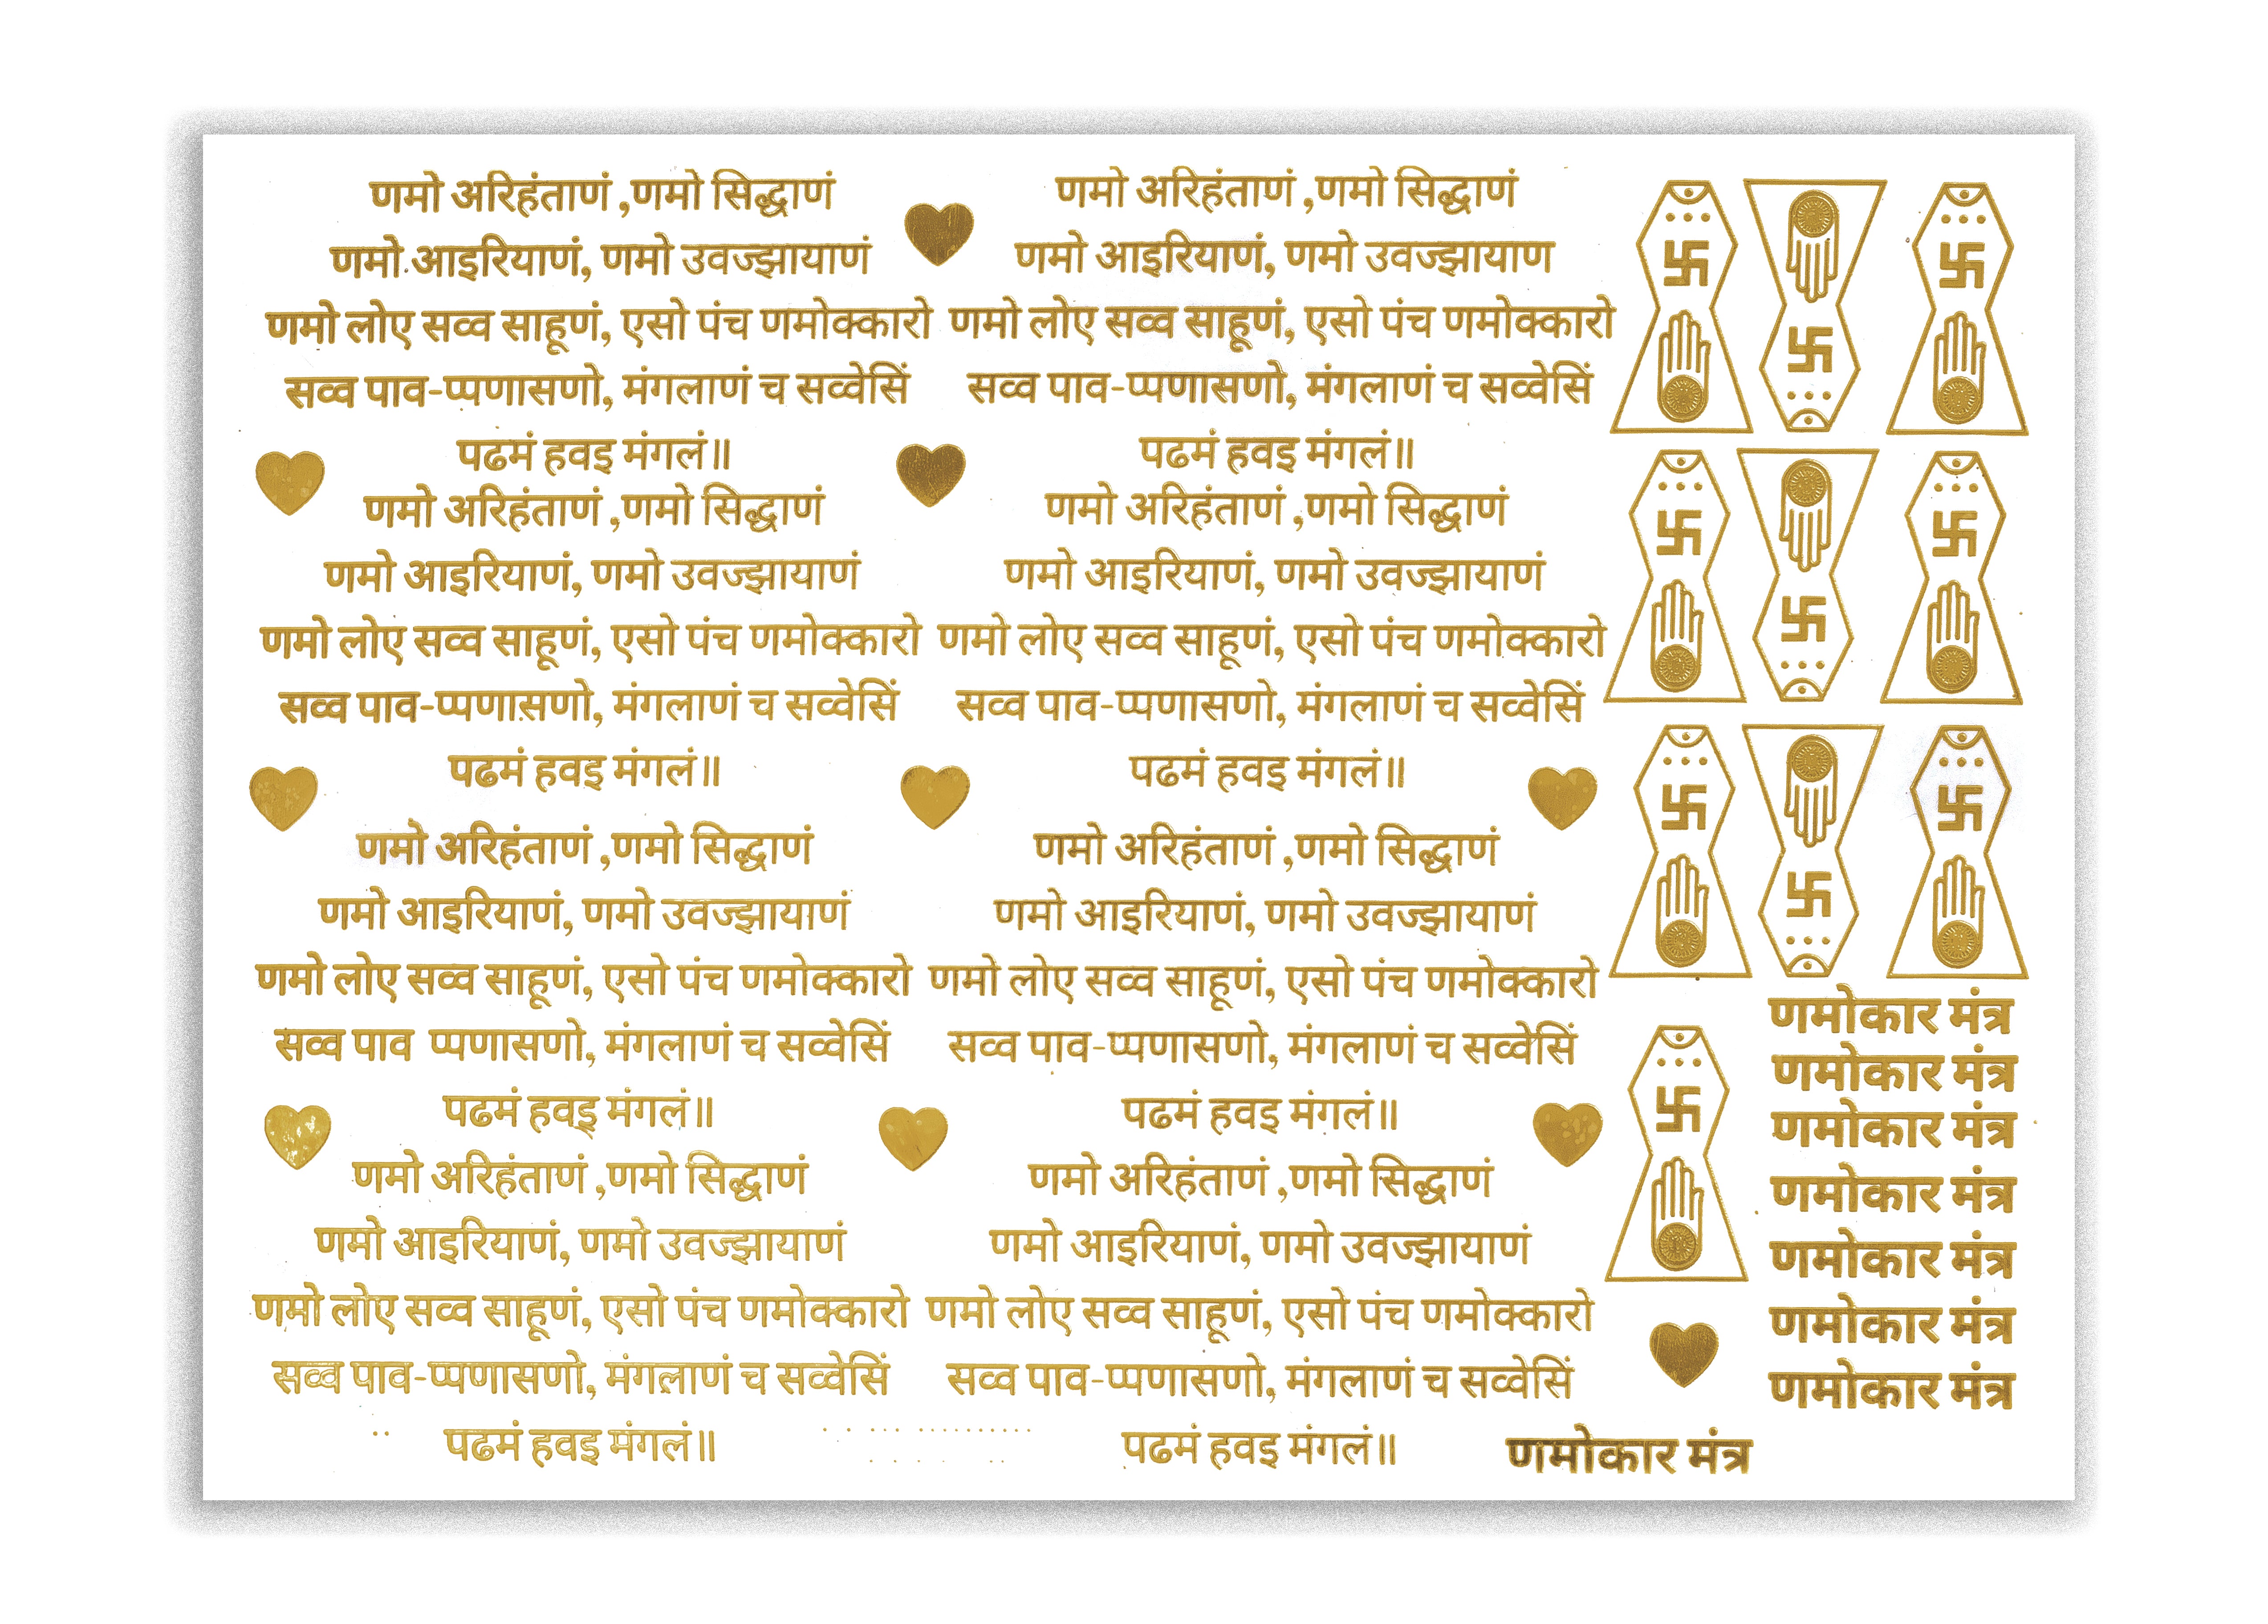 णमो अरिहंताणं ,णमो सिद्धाणं
णमो आइरियाणं, णमो उवज्झायाणं
णमो लोए सव्व साहूणं, एसो पंच णमोक्कारो
सव्व पाव-प्पणासणो, मंगलाणं च सव्वेसिं
पढमं हवइ मंगलं॥
णमो अरिहंताणं ,णमो सिद्धाणं
णमो आइरियाणं, णमो उवज्झायाणं
णमो लोए सव्व साहूणं, एसो पंच णमोक्कारो
सव्व पाव-प्पणासणो, मंगलाणं च सव्वेसिं
पढमं हवइ मंगलं॥
णमो अरिहंताणं ,णमो सिद्धाणं
णमो आइरियाणं, णमो उवज्झायाणं
णमो लोए सव्व साहूणं, एसो पंच णमोक्कारो
सव्व पाव प्पणासणो, मंगलाणं च सव्वेसिं
पढमं हवइ मंगलं॥
णमो अरिहंताणं ,णमो सिद्धाणं
णमो आइरियाणं, णमो उवज्झायाणं
णमो लोए सव्व साहूणं, एसो पंच णमोक्कारो
सव्व पाव-प्पणासणो, मंगलाणं च सव्वेसिं
पढमं हवइ मंगलं॥
णमो अरिहंताणं ,णमो सिद्धाणं
णमो आइरियाणं, णमो उवज्झायाण
णमो लोए सव्व साहूणं, एसो पंच णमोक्कारो
सव्व पाव-प्पणासणो, मंगलाणं च सव्वेसिं
पढमं हवइ मंगलं॥
णमो अरिहंताणं ,णमो सिद्धाणं
णमो आइरियाणं, णमो उवज्झायाणं
णमो लोए सव्व साहूणं, एसो पंच णमोक्कारो
सव्व पाव-प्पणासणो, मंगलाणं च सव्वेसिं
पढमं हवइ मंगलं॥
णमो अरिहंताणं ,णमो सिद्धाणं
णमो आइरियाणं, णमो उवज्झायाणं
णमो लोए सव्व साहूणं, एसो पंच णमोक्कारो
सव्व पाव-प्पणासणो, मंगलाणं च सव्वेसिं
पढमं हवइ मंगलं॥
णमो अरिहंताणं ,णमो सिद्धाणं
णमो आइरियाणं, णमो उवज्झायाणं
णमो लोए सव्व साहूणं, एसो पंच णमोक्कारो
सव्व पाव-प्पणासणो, मंगलाणं च सव्वेसिं
पढमं हवइ मंगलं॥
णमोकार मंत्र
णमोकार मंत्र
णमोकार मंत्र
णमोकार मंत्र
णमोकार मंत्र
णमोकार मंत्र
णमोकार मंत्र
णमोकार मंत्र